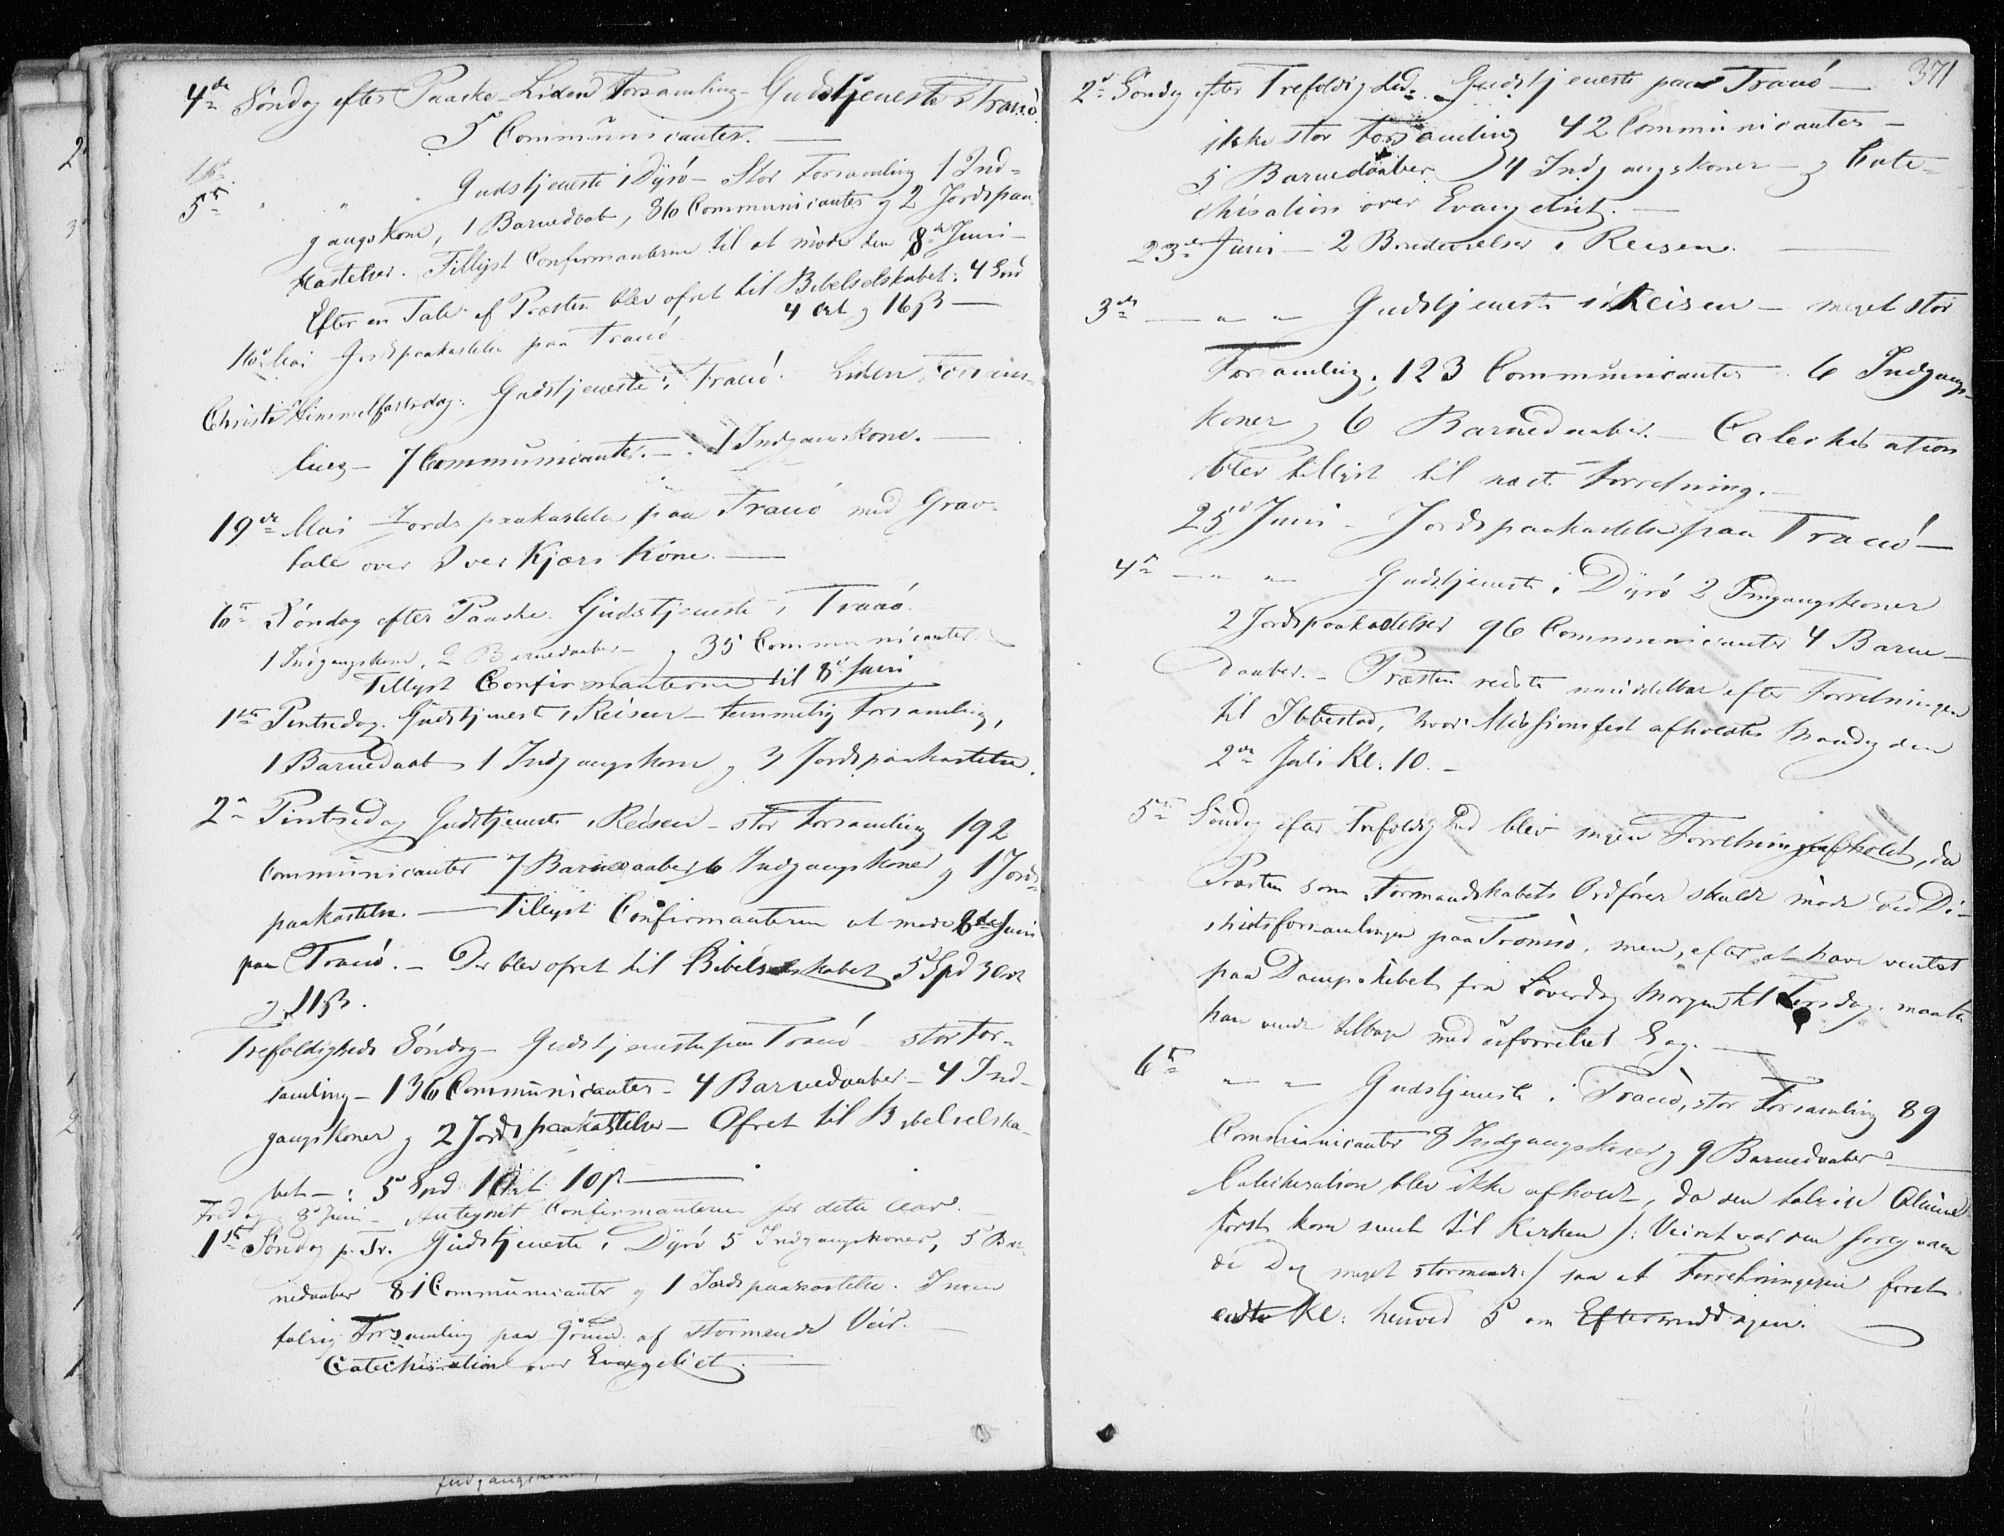 4de Søndag efter Paaske. Liden Forsamling. Gudstjeneste i Tranö.
5 Communicanter. —
5te " " Gudstjeneste i Dyrö — Stor Forsamling 1 Ind-
gangskone, 1 Barnedaab, 86 Communicanter og 2 Jordspaa-
kastelser. Tillyst Confirmanterne til at möde den 8de Juni —
Efter en Tale af Præsten blev ofret til Bibelselskabet: 4 Spd
4 Ort og 16 β —
16de Mai Jordspaakastelse paa Tranö
Christi Himmelfartsdag. Gudstjeneste i Tranö. Liden Forsam-
ling — 7 Communicanter. — 1 Indgangskone. —
19de Mai Jordspaakastelse paa Tranö med Grav-
tale over Iver Kjærs Kone. —
6te Söndag efter Paaske. Gudstjeneste i Tranö.
1 Indgangskone, 2 Barnedaaber — og 35 Communicanter.
Tillyst Confirmanterne til 8de Juni
1ste Pintsedag. Gudstjeneste i Reisen — temmelig Forsamling,
1 Barnedaab 1 Indgangskone og 3 Jordspaakastelser.
2n Pintsedag Gudstjeneste i Reisen — stor Forsamling 192
Communicanter 7 Barnedaaber 6 Indgangskoner og 1 Jords-
paakastelse. — Tillyst Confirmanterne at möde 8de Juni
paa Tranö. — Der blev ofret til Bibelselskabet 5 Spd 3 Ort
og 11 β.
Trefoldigheds Söndag — Gudstjeneste paa Tranö — stor For-
samling — 136 Communicanter — 4 Barnedaaber — 4 Ind-
gangskoner og 2 Jordspaakastelser — Ofret til Bibelselska-
bet —: 5 Spd 1 Ort 10 β —
Fredag 8de Juni — Antegnet Confirmanterne for dette Aar. —
1ste Söndag p. Tr. Gudstjeneste i Dyrö 5 Indgangskoner, 5 Bar-
nedaaber 81 Communicanter og 1 Jordspaakastelse. Ingen
talrig Forsamling paa Grund af stormende Veir. —
Catechisation over Evangeliet. —
371
2den Söndag efter Trefoldighed. Gudstjeneste paa Tranö —
ikke stor Forsamling 42 Communicanter —
5 Barnedaaber 4 Indgangskoner — og Cate-
chisation over Evangeliet. —
23de Juni — 2 Brudevielser i Reisen. —
3de — " — " — Gudstjeneste i Reisen — meget stor
Forsamling, 123 Communicanter. 6 Indgangs-
koner og 6 Barnedaaber. — Catechisation
blev tillyst til næste Forretning. —
25de Juni — Jordspaakastelse paa Tranö —
4de — " — " — Gudstjeneste i Dyrö 2 Indgangskoner
2 Jordspaakastelser 96 Communicanter 4 Barne-
daaber. — Præsten reiste umiddelbar efter Forretningen
til Ibbestad, hvor Missionsfest afholdtes Mandag den
2den Juli Kl. 10. —
5te Söndag efter Trefoldighed blev ingen Forretning afholdt, da
Præsten som Formandskabets Ordförer skulde möde ved Di-
striktsforsamlingen paa Tromsö, men, efter at have ventet
paa Dampskibet fra Löverdag Morgen til Tirsdag, maatte
han vende tilbage med uforrettet Sag. —
6te — " — " — Gudstjeneste i Tranö, stor Forsamling 89
Communicanter 8 Indgangskoner og 9 Barnedaaber —
Catechisation blev ikke afholdt, da den talrige Almue
först kom sent til Kirken /: Veiret var den foregaaen-
de Dag meget stormende :/ saa at Forretningerne först
endte Kl. henved 5 om Eftermiddagen.
Indgangskoner,